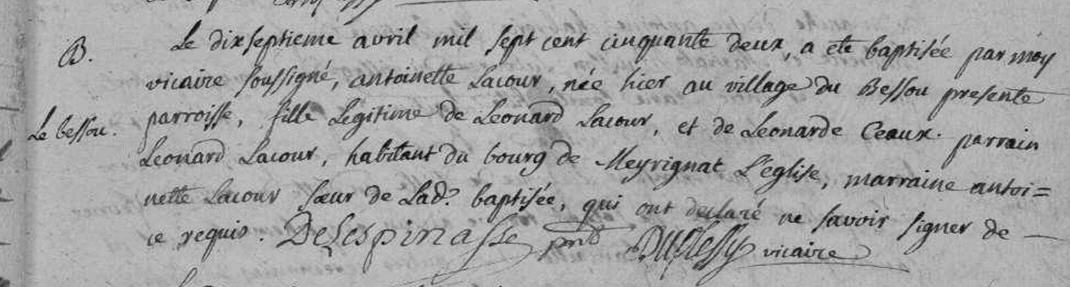 B.
Le dixseptieme avril mil sept cent cinquante deux, a ete baptisée par moy
vicaire soussigné, antoinette Lacour, née hier au village du Bessou presente
Le bessou.
parroisse, fille Legitime de Leonard Lacour, et de Leonarde Ceaux. parrain
Leonard Lacour, habitant du bourg de Meyrignat L'église, marraine antoi=
nette Lacour sœur de Lad.e baptisée, qui ont declaré ne savoir signer de
ce requis. DeLespinasse pnt Duplessy vicaire